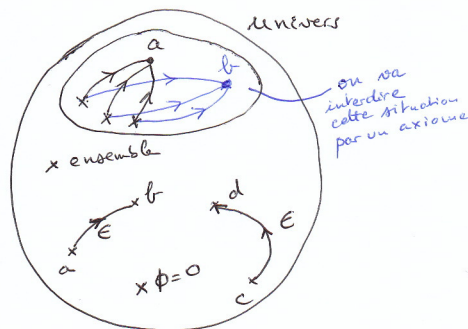 Univers
a
b
on va
interdire
cette situation
par un axiome
x ensemble
b
d
∈
∈
a
x ϕ=0
c